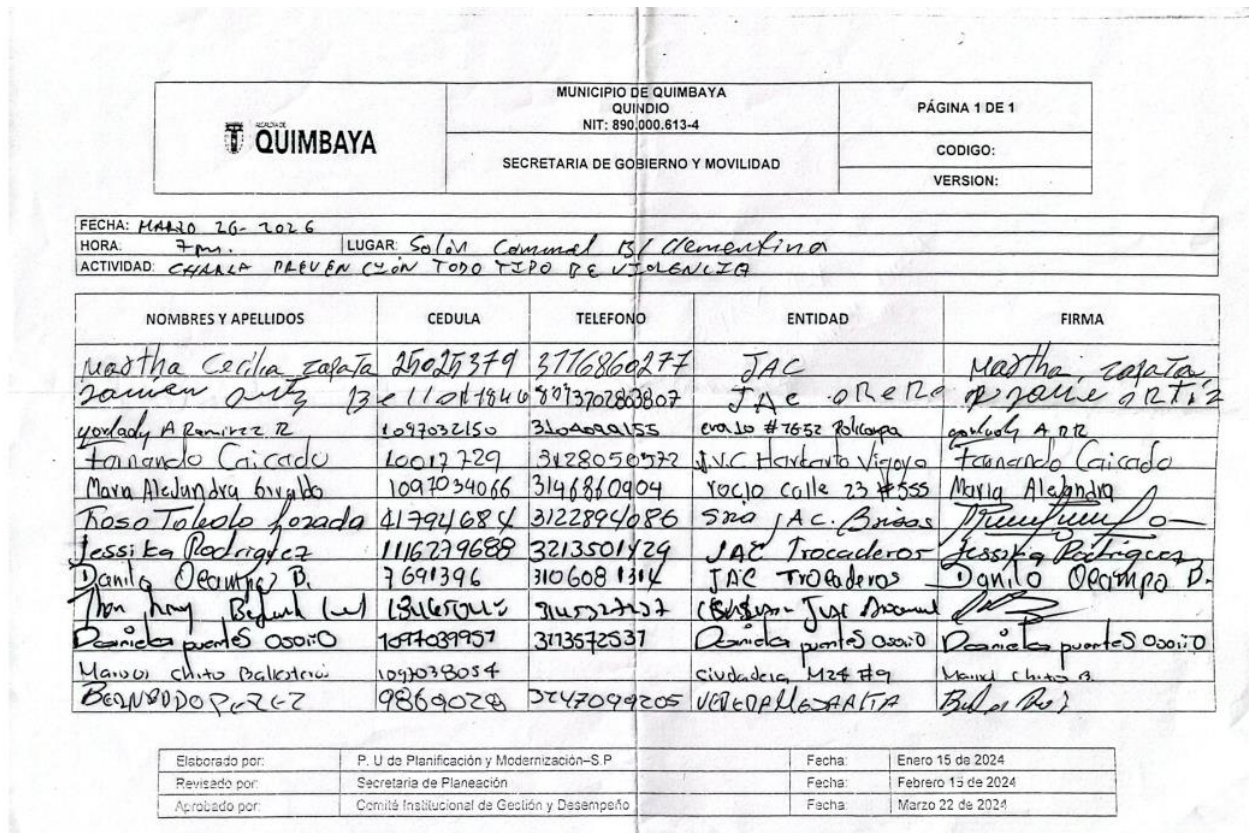 ALCALDIA DE
QUIMBAYA
MUNICIPIO DE QUIMBAYA
QUINDIO
NIT: 890.000.613-4
SECRETARIA DE GOBIERNO Y MOVILIDAD
PÁGINA 1 DE 1
CODIGO:
VERSION:
FECHA: MARZO 26-2026
HORA: 7pm. LUGAR: Salón Comunal B/ Clementina
ACTIVIDAD: CHARLA PREVENCIÓN TODO TIPO DE VIOLENCIA
NOMBRES Y APELLIDOS CEDULA TELEFONO ENTIDAD FIRMA
Martha Cecilia zapata 25025379 3116860277 JAC Martha zapata
JAC ORTIZ
A Ramirez R 1097032150 # 7652 Policarpa
Fernando Caicedo 10017729 3128050572 J.V.C Fernando Caicedo
Maria Alejandra Giraldo 1097034066 3146860904 rocio calle 23 #555 Maria Alejandra
Rosa Toledo Lozada 41794684 3122894086 Sria JAC. Brisas
Jessika Rodriguez 1116279688 3213501429 JAC Trocaderos Jessika Rodriguez
Danilo Ocampo B. 7691396 3106081314 JAC Trocaderos Danilo Ocampo B.
Daniela puentes Osorio 1097039957 3113572537 Daniela puentes Osorio Daniela puentes Osorio
Chito Ballesteros 1097038054 ciudadela M24 #9 Chito B.
BERNARDO PEREZ 9869028 3247099205 VEREDA MESA ALTA
Elaborado por: P. U de Planificación y Modernización–S.P Fecha: Enero 15 de 2024
Revisado por: Secretaria de Planeación Fecha: Febrero 15 de 2024
Aprobado por: Comité Institucional de Gestión y Desempeño Fecha: Marzo 22 de 2024